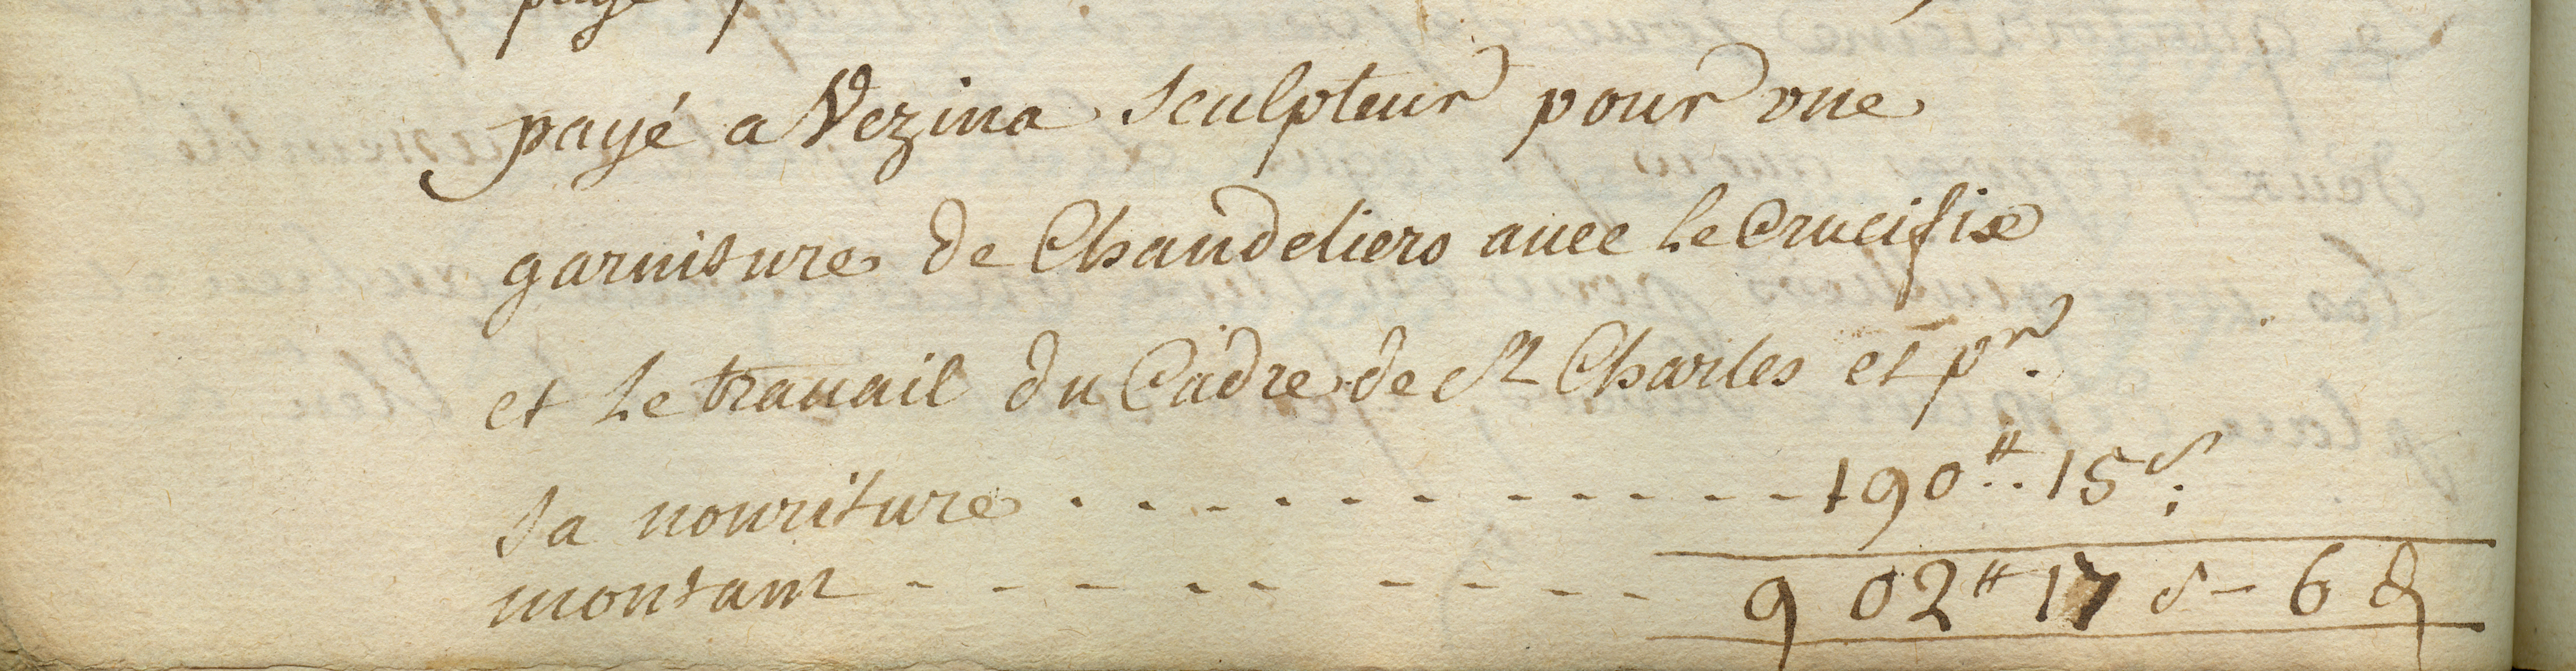 payé a Vezina sculpteur pour vne
garniture de Chandeliers auec le Crucifix
et le trauail du Cadre de St Charles et pr.
sa nouriture . . . . - - - - - - - - 190⁗.. 15 s;
montant - - - - - - - - - 902⁗ 17 s - 6 d